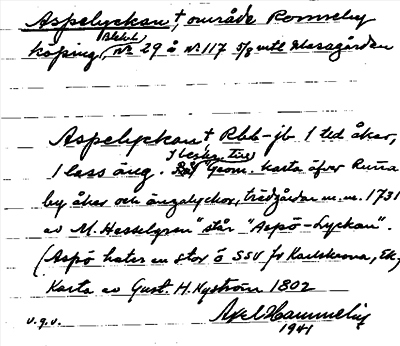 Aspelyckan †, område Ronneby
Blek.l.
köping, Nr 29 å Nr 117 5/8 mtl Masagården
Aspelyckan † Rbb-jb 1 tld åker,
1 lass äng. Geom. Karta öfver Runa
by åker och ängalyckor, trädgårdar m.m. 1731
av M. Hesselgren" står "Aspö-Lyckan".
(Aspö heter en stor ö SSV fr Karlskrona, Ek,
Karta av Gust. H. Nyström 1802
Axel Hammelin
v.g.v. 1941